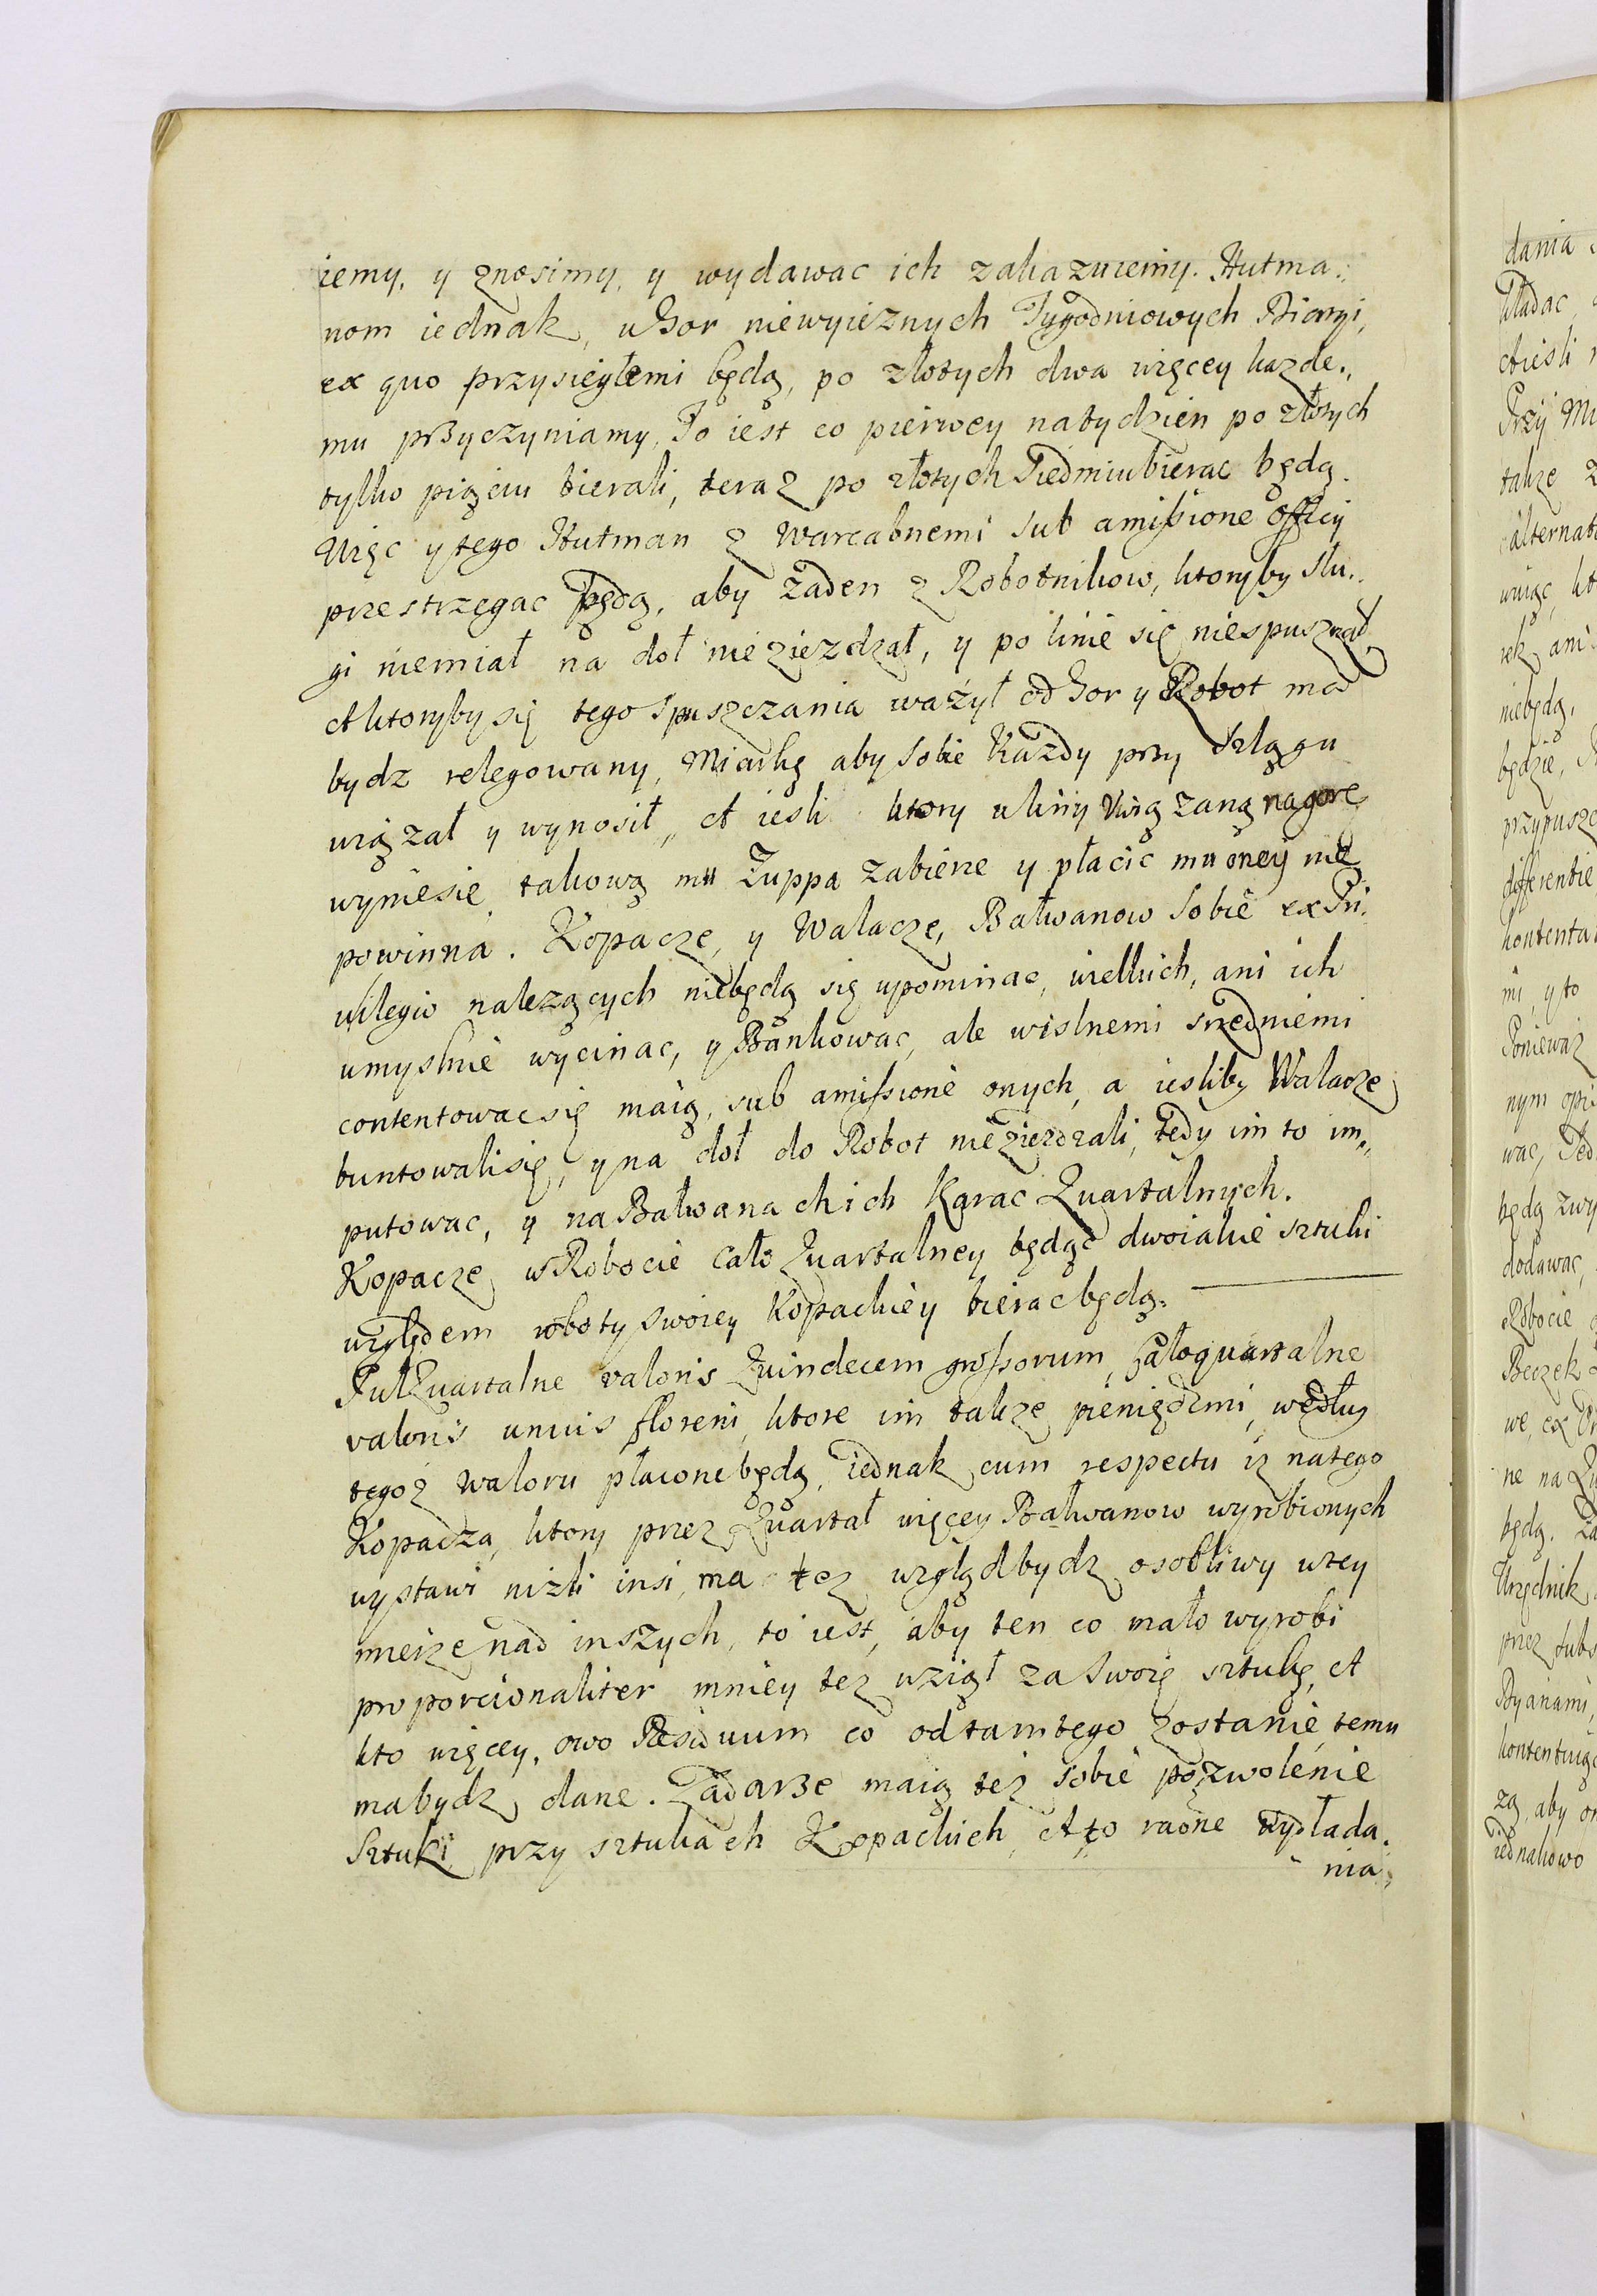 iemy, y znosimy, y wydawac ich zakazuiemy. Hutma:
nom iednak, u Gor niewyieznych Tygodniowych
ex quo przysięgłemi będą, po złotych dwa więcey kazde:,
mu przyczyniamy, To iest co pierwey na tydzien po złotych
tylko pięciu bierali, teraz po złotych Siedmiu bierac będą.
Więc y tego Hutman z Warcabnemi sub amissione officy
przestrzegac będą, aby zaden z Robotnikow, ktoryby slu:,
gi niemiał na doł niezieżdzał, y po linie się niespuszczał
A ktoryby się tego spuszczania ważył od Gor y Robot ma
bydz relegowany, Miarkę aby sobie Kazdy przy Szlągu
wiązał y wynosił, A iesli ktory u liny Wiązaną na gorę
wyniesie takową mu Zuppa zabierze y płacic mu oney nie
powinna. Kopacze, y Walacze, Bałwanow sobie ex Pri:
uilegio nalezących niebędą się upominac, wielkich, ani ich
umyslnie wycinac, y Bankowac, ale wislnemi srzedniemi
contentowac się maią, sub amissione onych, a iesliby Walacze
buntowali się, y na doł do Robot niezieżdzali, tedy im to im:,
putowac, y na Bałwanach ich Karac Quartalnych.
Kopacze w Robocie Cało Quartalney będąc dwoiakie sztuki
względem roboty swoiey Kopackiey bierac będą.
Puł Quartalne valoris Quindecem grossorum, całoquartalne
valoris unius floreni, ktore im takze pieniędzmi, według
tegoz waloru płacone będą, iednak cum respectu iz na tego
Kopacza, ktory przez Quartał więcey Bałwanow wyrobionych
wystawi nizli insi, ma tez wzgląd bydz osobliwy w tey
mierze nad inszych, to iest, aby ten co mało wyrobi
proporcionaliter mniey tez wziął za swoię sztukę, A
kto więcey, owo Residuum co od tamtego zostanie, temu
ma bydz dane. maią tez sobie pozwolenie
Sztuki przy sztukach Kopackich, A to racone wykłada:
nia,
dania
kładac
A iesli
Przy
takze
alternat
niebędą,
będzie,
przypuszc
differentie
kontenta
mi, y to
Poniewaz
nym
wac,
będą
dodawac,
Robocie
Beczek
we, ex
ne na
będą.
Urzędnik
przez
aby
iednakowo